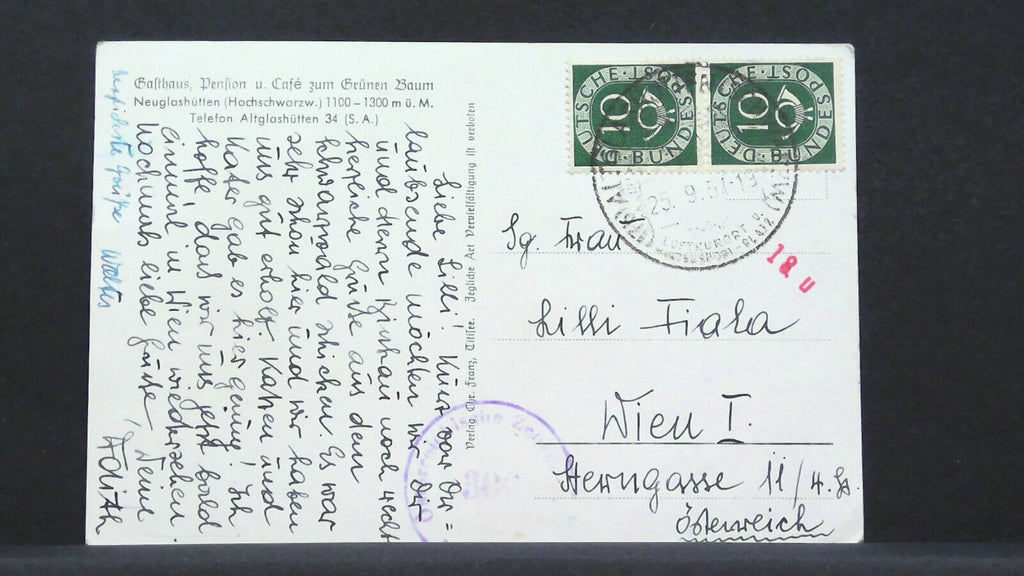 Gasthaus, Pension u. Café zum Grünen Baum
Neuglashütten (Hochschwarzw.) 1100–1300 m ü. M.
Telefon Altglashütten 34 (S. A.)
Liebe Lilli! Kurz vor Tor=
laufsende möchten wir Dir
und dem noch recht
herzliche Grüße aus dem
Schwarzwald schicken. Es war
sehr schön hier und wir haben
uns gut erholt. Katzen und
Kater gab es hier genug! Ich
hoffe, dass wir uns jetzt bald
einmal in Wien wiedersehen.
Nochmals liebe Grüße, Deine
Edith
Herzlichste Grüße Walter
Verlag Chr. Franz, Titisee. Jegliche Art Vervielfältigung ist verboten
DEUTSCHE BUNDESPOST
10
DEUTSCHE BUNDESPOST
10
25. 9. 57-19
LUFTKURORT U.
18 U
Sg. Frau
Lilli Fiala
Wien I.
Sterngasse 11/4. St.
Österreich
Österreichische Zensur
300